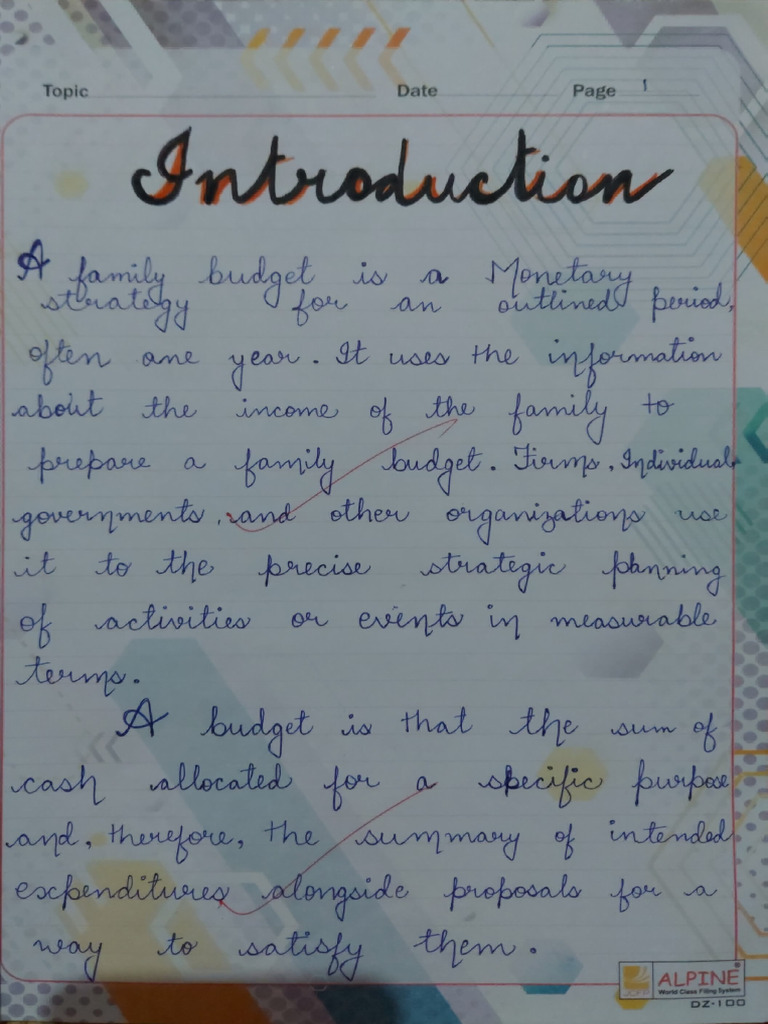 Topic Date Page 1
Introduction
A family budget is a Monetary
strategy for an outlined period,
often one year. It uses the information
about the income of the family to
prepare a family budget. Firms, Individual
governments, and other organizations use
it to the precise strategic planning
of activities or events in measurable
terms.
A budget is that the sum of
cash allocated for a specific purpose
and, therefore, the summary of intended
expenditures alongside proposals for a
way to satisfy them.
ALPINE
World Class Filing System
DZ-100